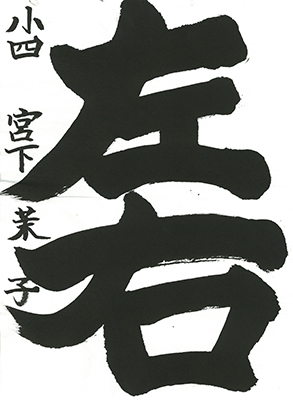 左右
小四 宮下茉子